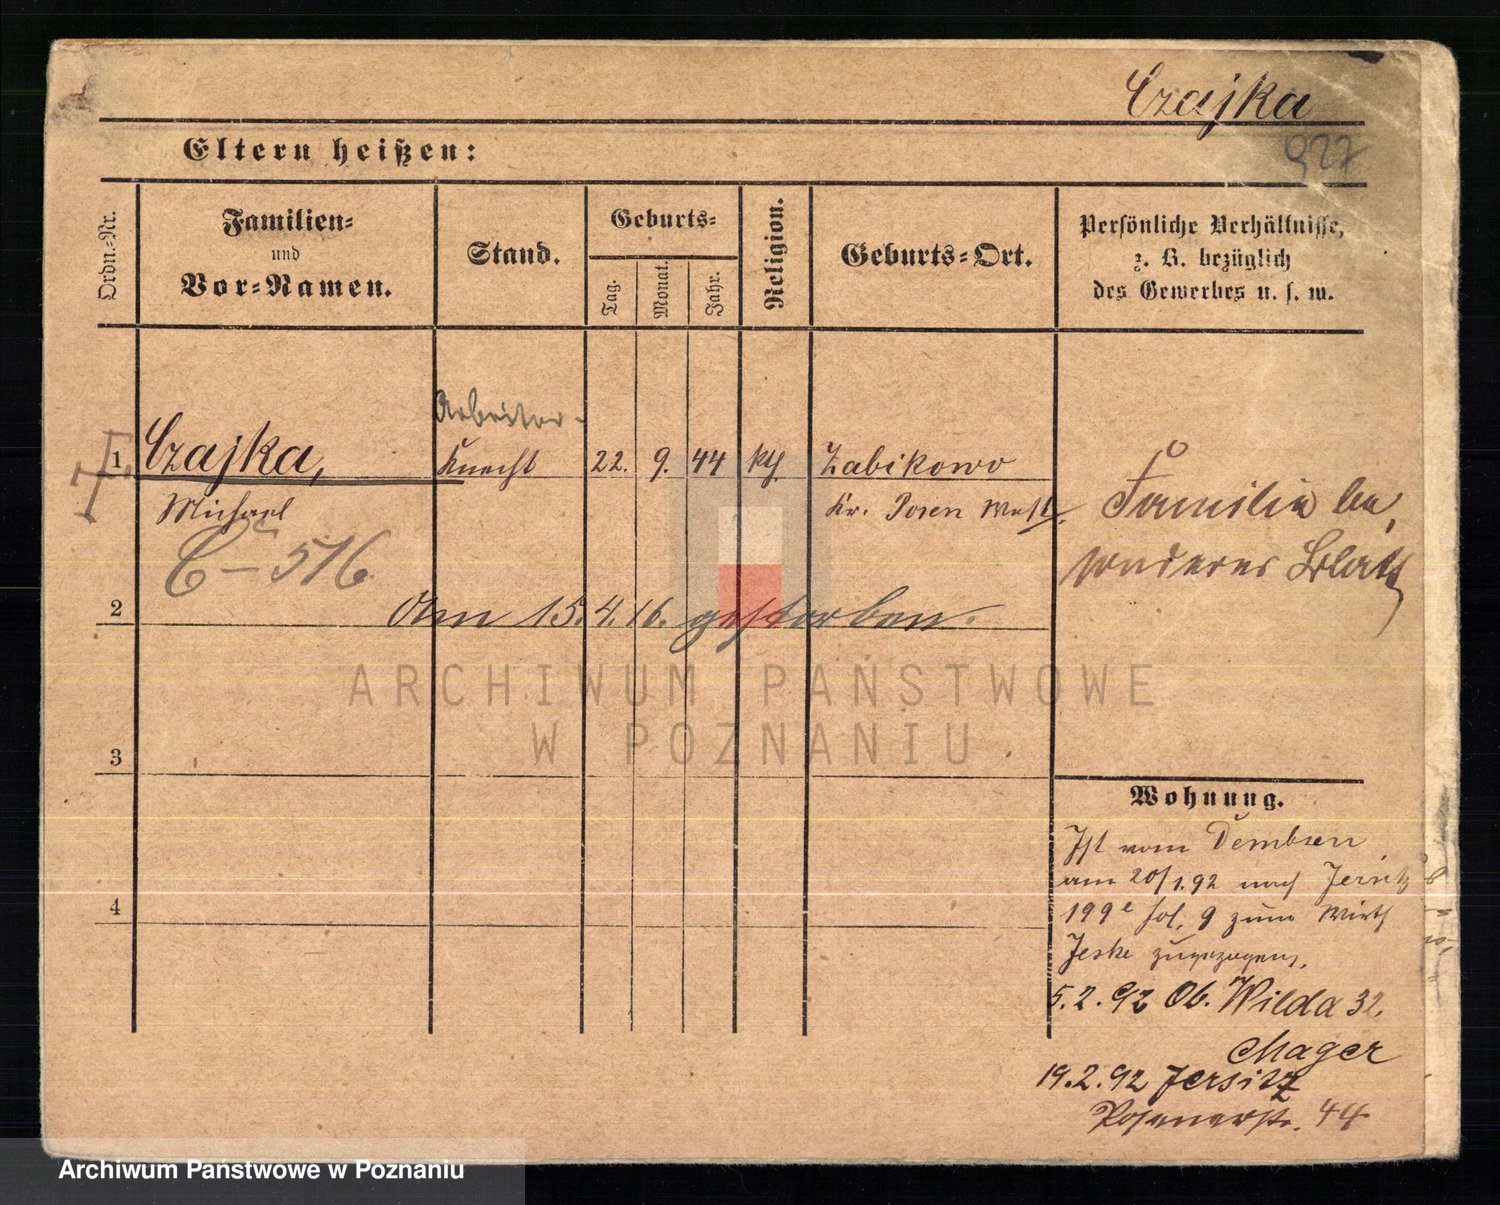 Czajka
927
Eltern heißen:
Ordn.-Nr.
Familien-
und
Vor-Namen.
Stand.
Geburts-
Tag.
Monat.
Jahr.
Religion.
Geburts-Ort.
Persönliche Verhältnisse,
z. B. bezüglich
des Gewerbes u. s. w.
Arbeiter-
1 Czajka, Knecht 22. 9. 44 kth. Zabikowo
Michael Kr. Posen West.
Familie be
sonderes Blatt
C-516
2
Am 15.4.16. gestorben.
ARCHIWUM PAŃSTWOWE
W POZNANIU
3
Wohnung.
Ist vom Dembsen
am 20/1.92 nach Jersitz
199e 9 zum Wirth
Jeske zugezogen,
4
5.2.92 Ob. Wilda 32.
Mager
19.2.92 Jersitz
Posenerstr. 44
Archiwum Państwowe w Poznaniu